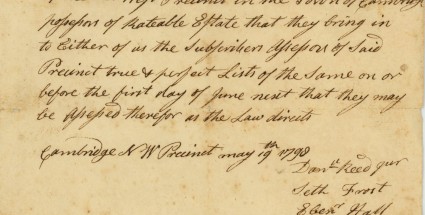 Precinct in the Town of Cambridge
possessors of Rateable Estate that they bring in
to Either of us the Subscribers Assessors of Said
Precinct true & perfect Lists of the Same on or
before the first day of June next that they may
be Assessed therefor as the Law directs
Cambridge N W Precinct may 19th 1798
Danl. Reed jur
Seth Frost
Ebenr Hall